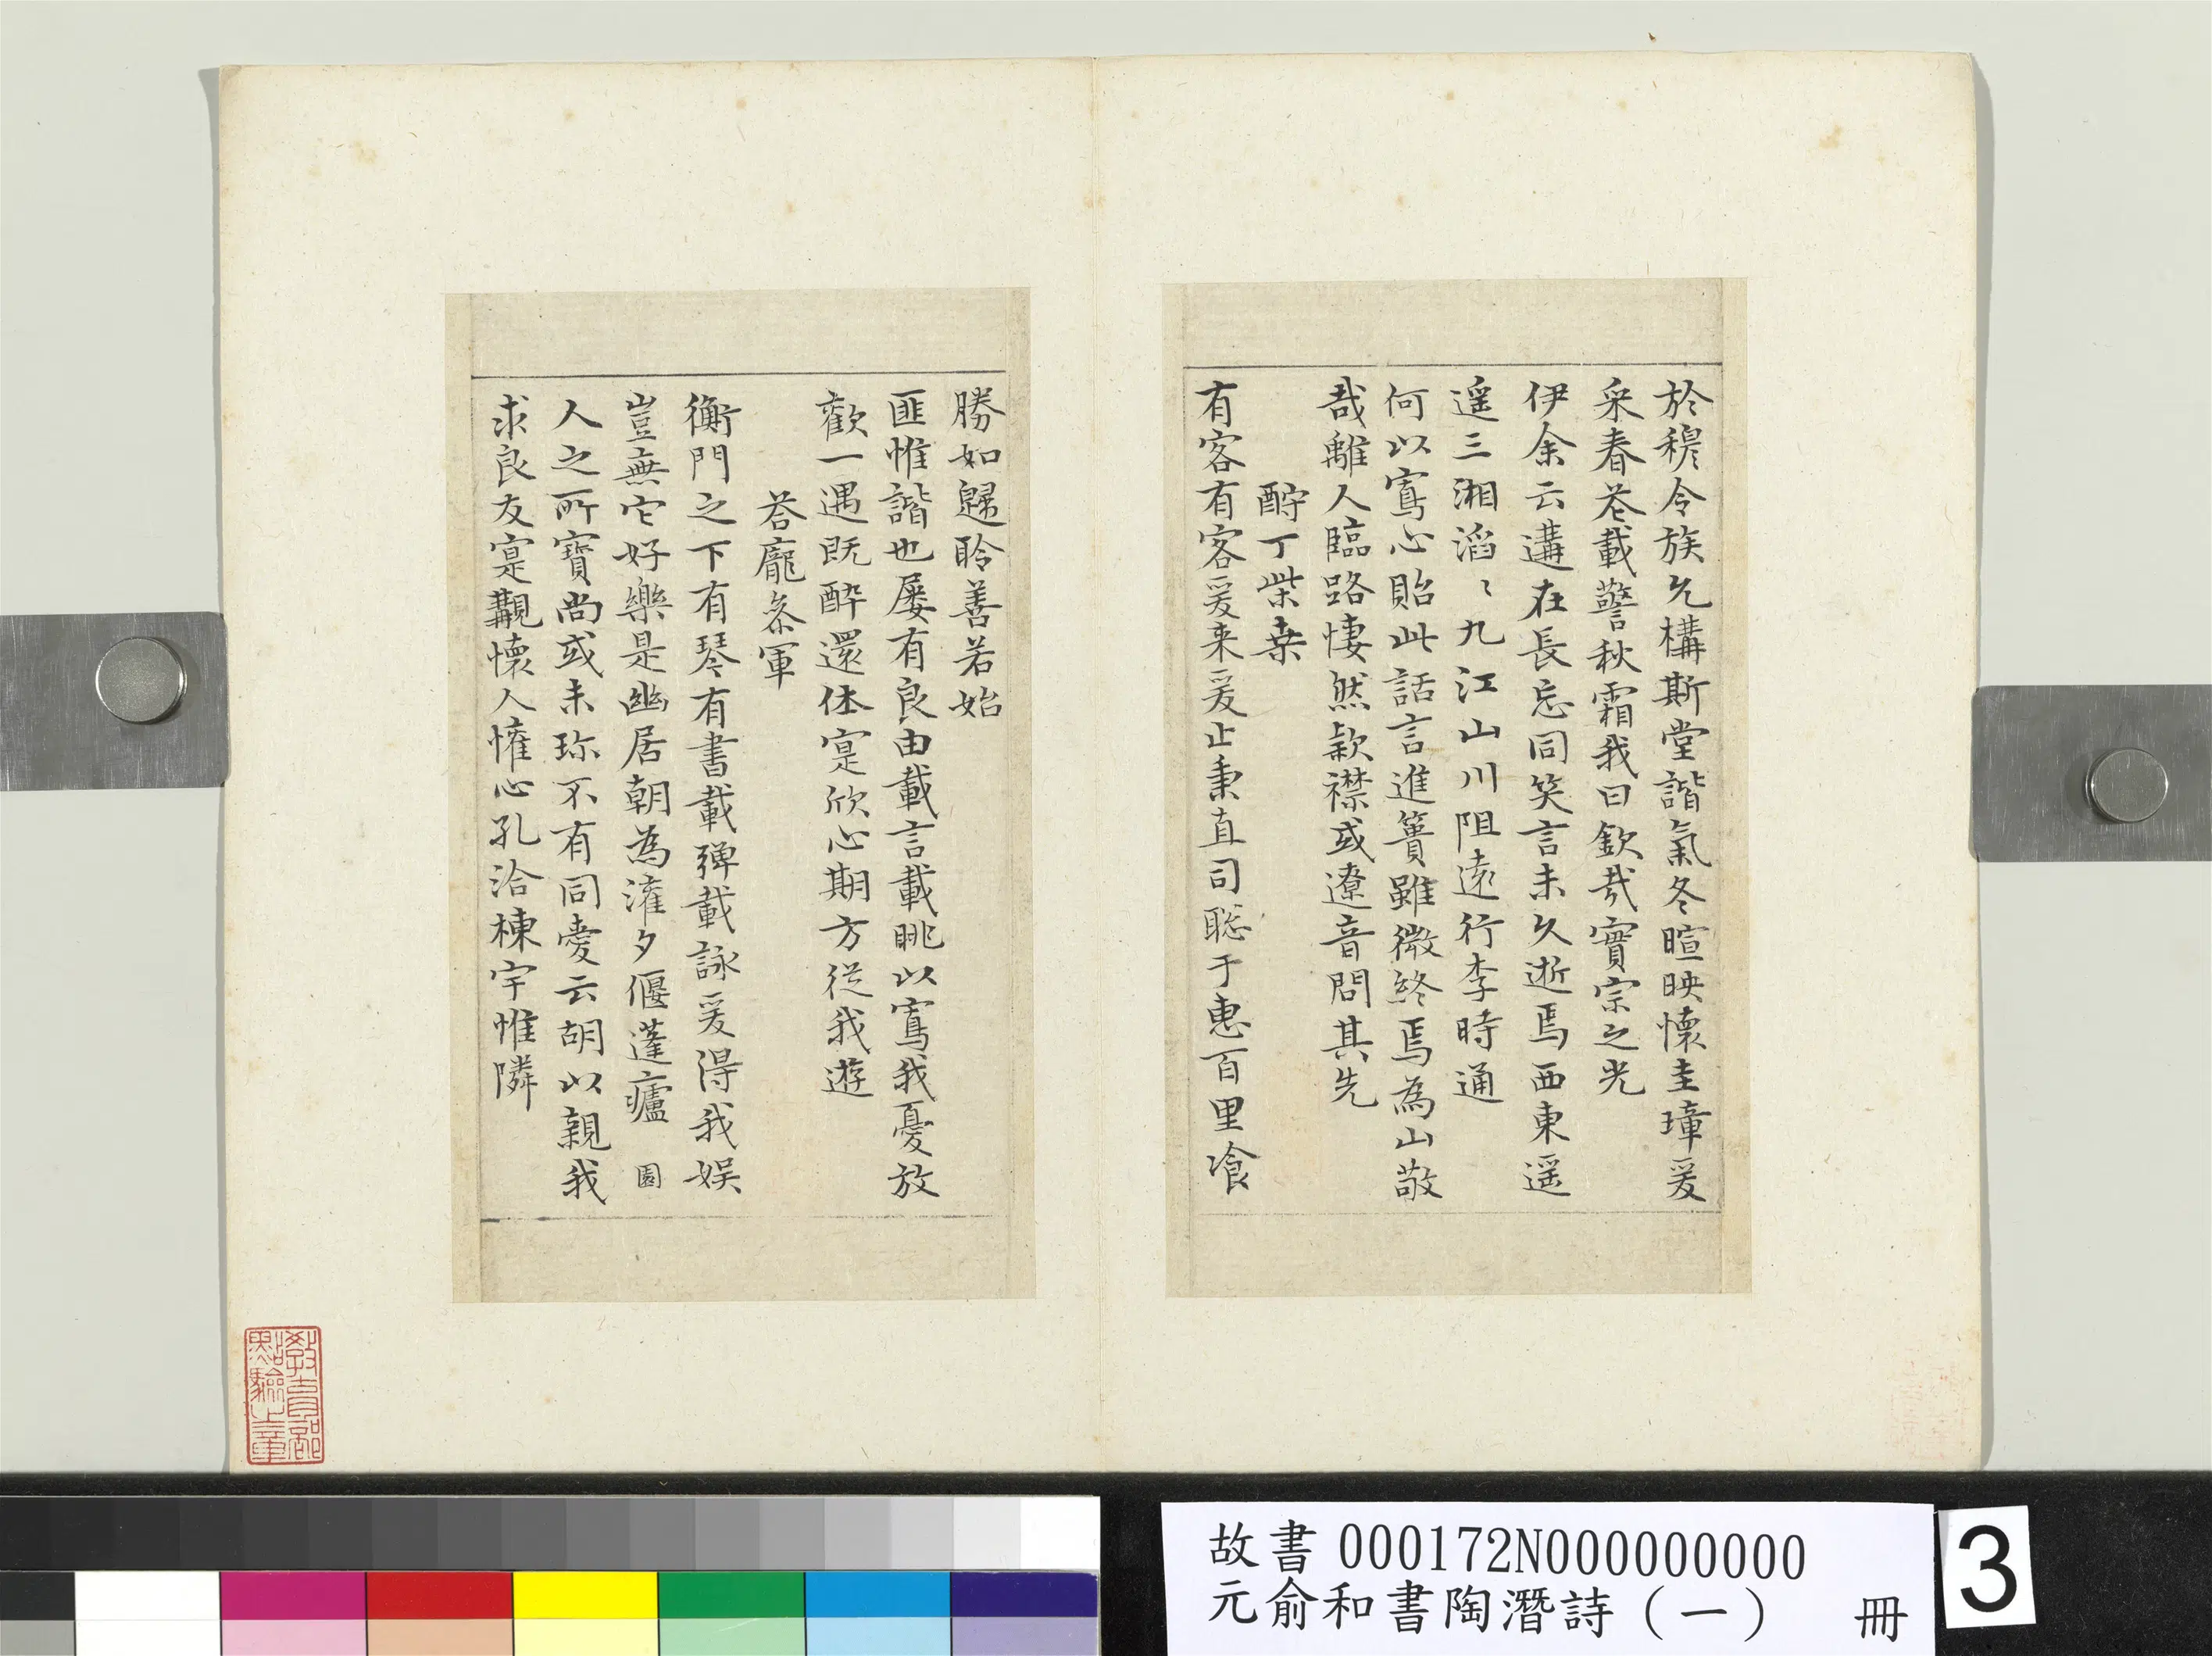 於穆令族允構斯堂諧氣冬暄映懷圭璋爰
采春花載警秋霜我曰欽哉實宗之光
伊余云遘在長忘同笑言未久逝焉西東遥
遥三湘滔〻九江山川阻遠行李時通
何以寫心貽此話言進簣雖微終焉為山敬
哉離人臨路悽然款襟或遼音問其先
酧丁柴桒
有客有客爰来爰止秉直司聡于惠百里飡
勝如歸聆善若始
匪惟諧也屡有良由載言載眺以寫我憂放
歡一遇既醉還休寔欣心期方從我遊
荅龐叅軍
衡門之下有琴有書載彈載詠爰得我娱
豈無它好樂是幽居朝為灌夕偃蓬廬 園
人之所寶尚或未珎不有同愛云胡以親我
求良友寔覯懷人懽心孔洽棟宇惟隣
教育部
點驗之章
故書 000172N000000000
元俞和書陶潛詩（一） 冊
3